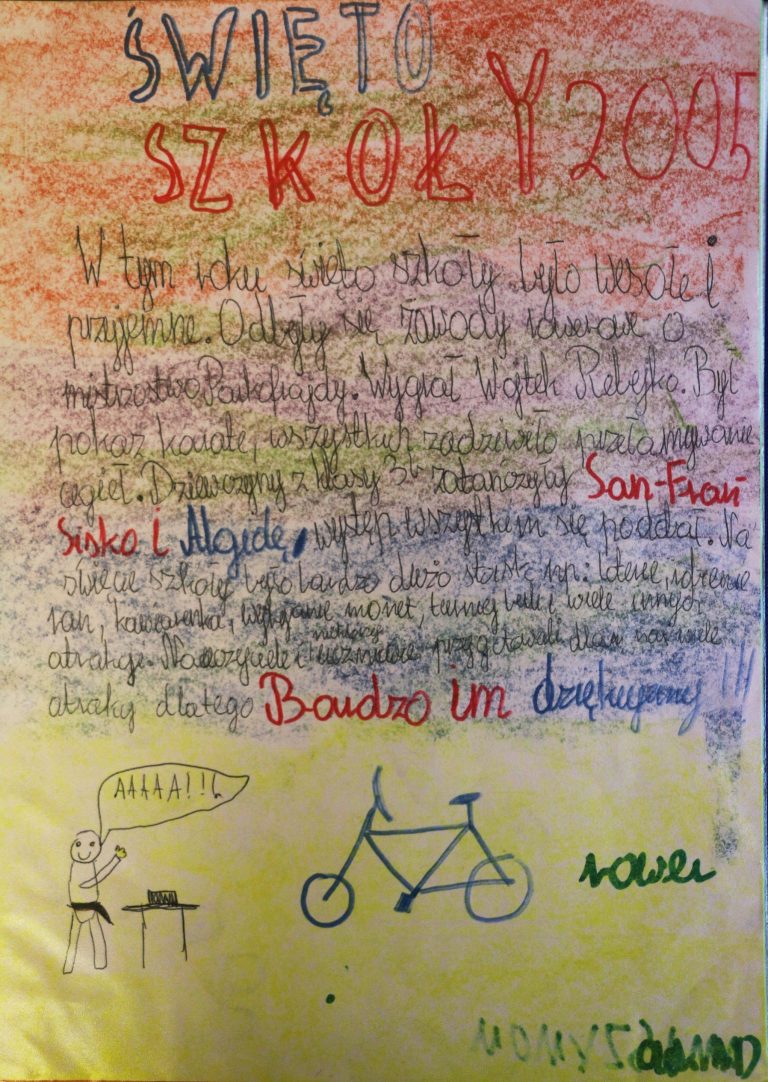 ŚWIĘTO
SZKOŁY 2005
W tym roku święto szkoły było wesołe i
przyjemne. Odbyły się zawody rowerowe o
mistrzostwo. Wygrał Wojtek Rebejko. Był
pokaz karate, wszystkich zadziwiło przełamywanie
cegieł. Dziewczyny z klasy 3b zatańczyły San-Fran
Sisko i Algidę, występ wszystkim się podobał. Na
święcie szkoły było bardzo dużo np.: loterie,
kawiarenka, monet, i wiele innych
atrakcji. Nauczyciele i niektórzy uczniowie przygotowali dla nas wiele
dlatego Bardzo im dziękujemy !!!
AAAAA!!!
rower